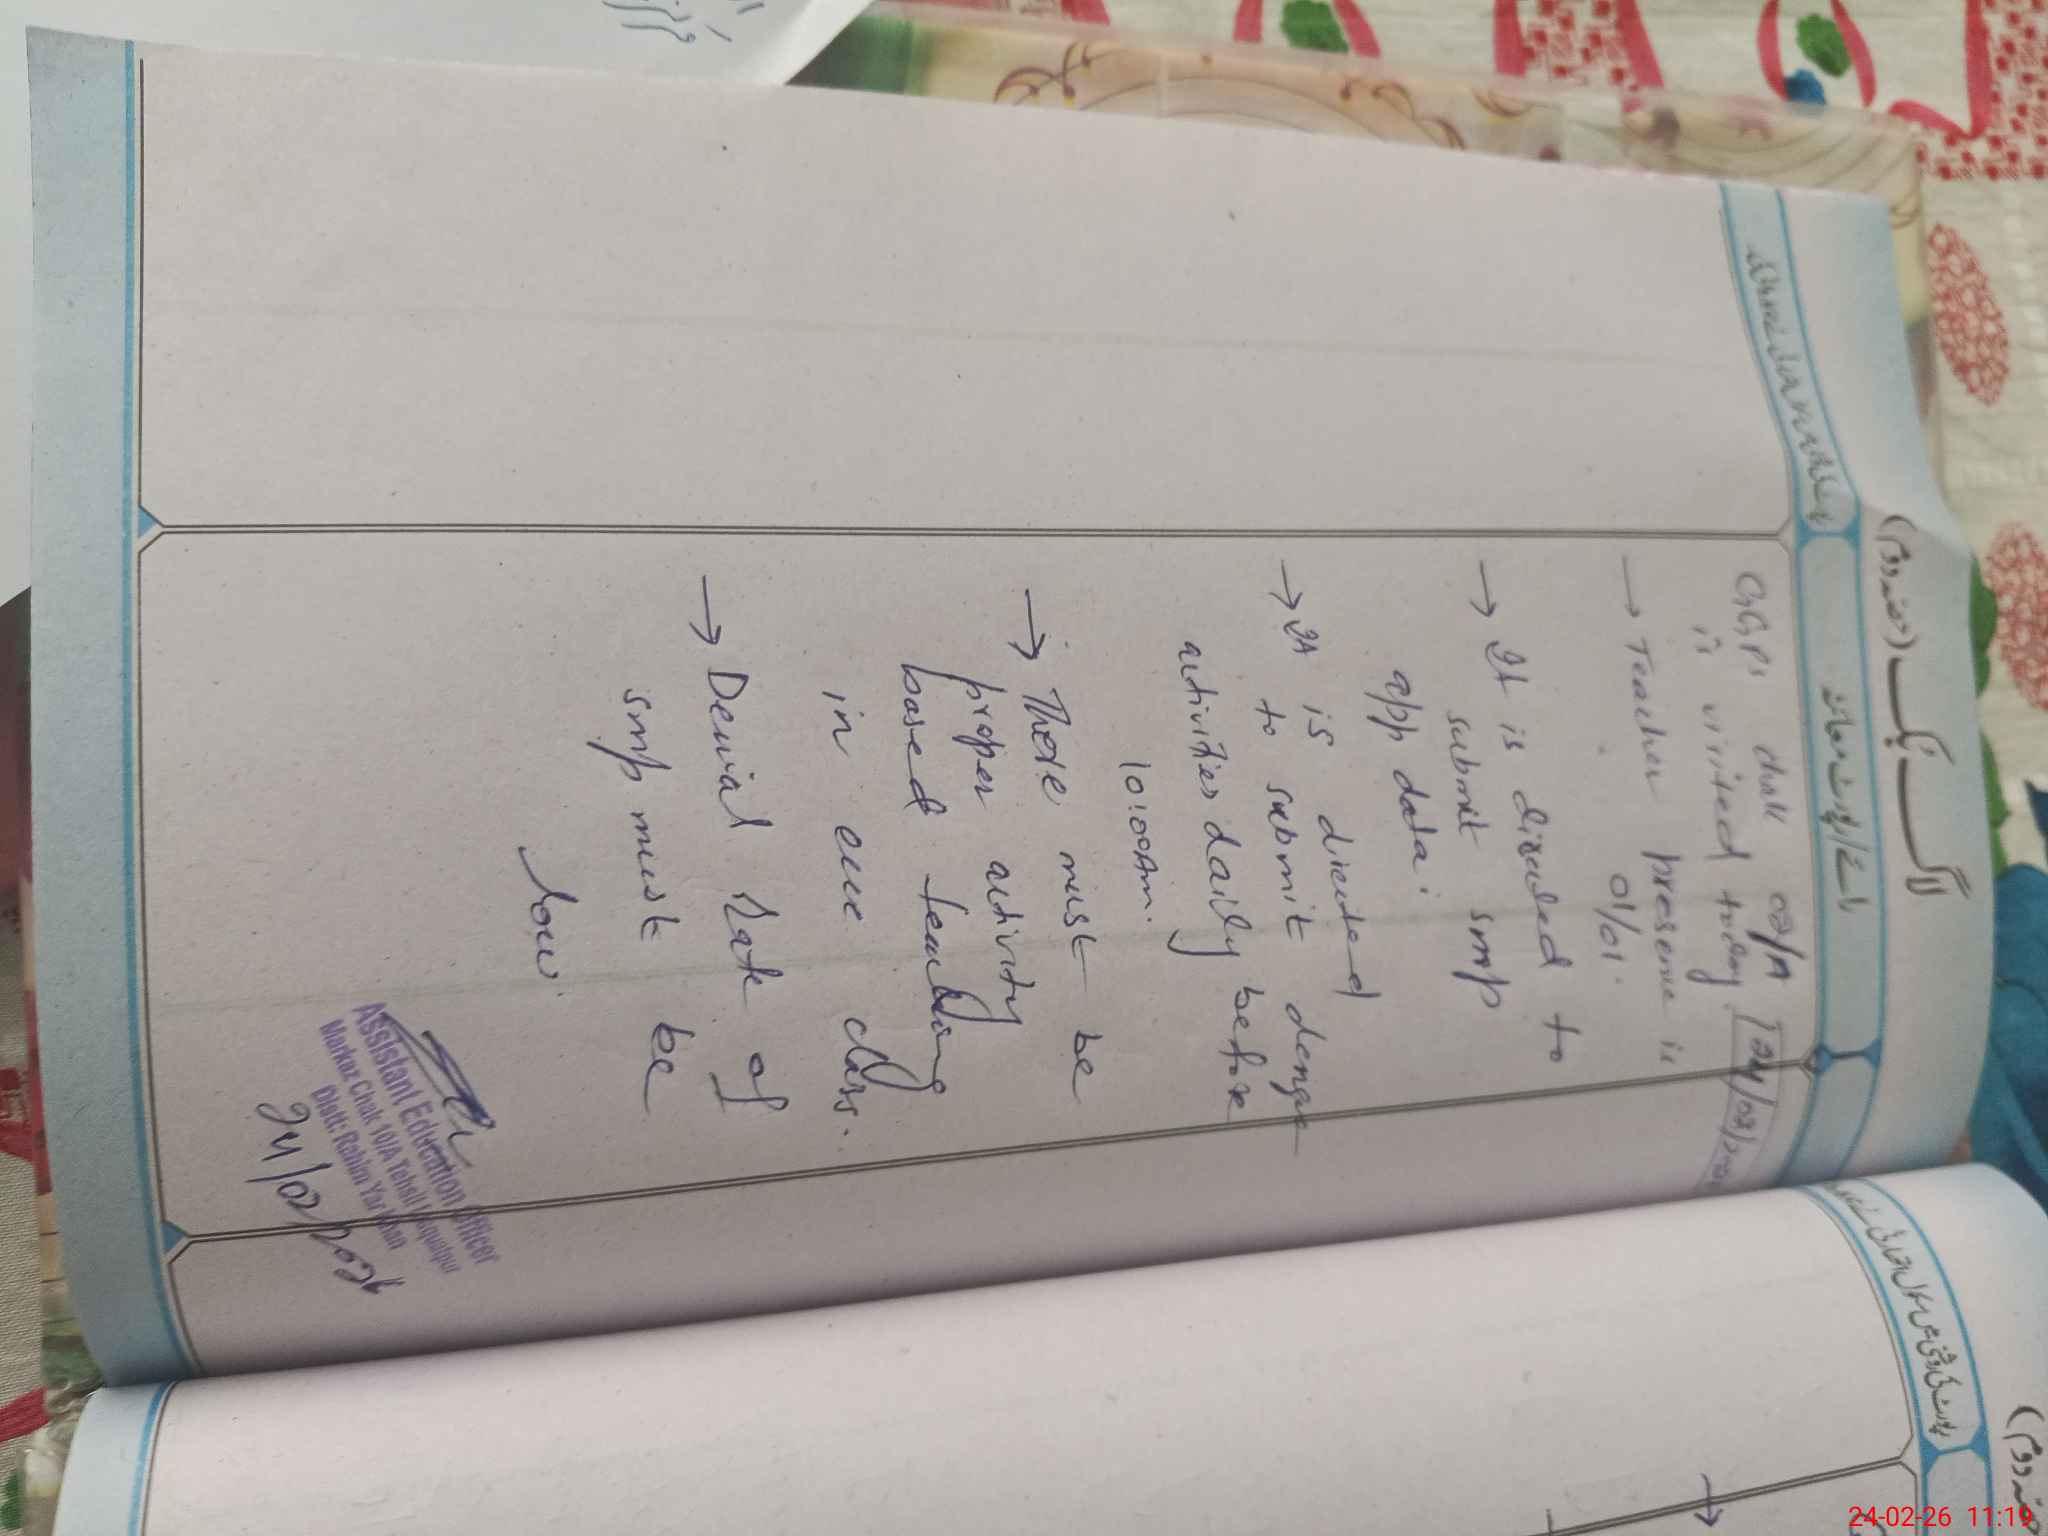 لاگ بک (حصہ دوم)
GGPS chak 02/A 24/02/2026
is visited today
→ Teacher presense is
01/01.
→ It is directed to
submit smp
app data.
→ It is directed
to submit dengue
activities daily before
10:00Am.
→ There must be
proper activity
based teaching
in ece class.
→ Denial Rate of
smp must be
low.
Assistant Education Officer
Markaz Chak 10/A Tehsil Liaquatpur
Distt: Rahim Yar Khan
24/02/2026
24-02-26 11:19